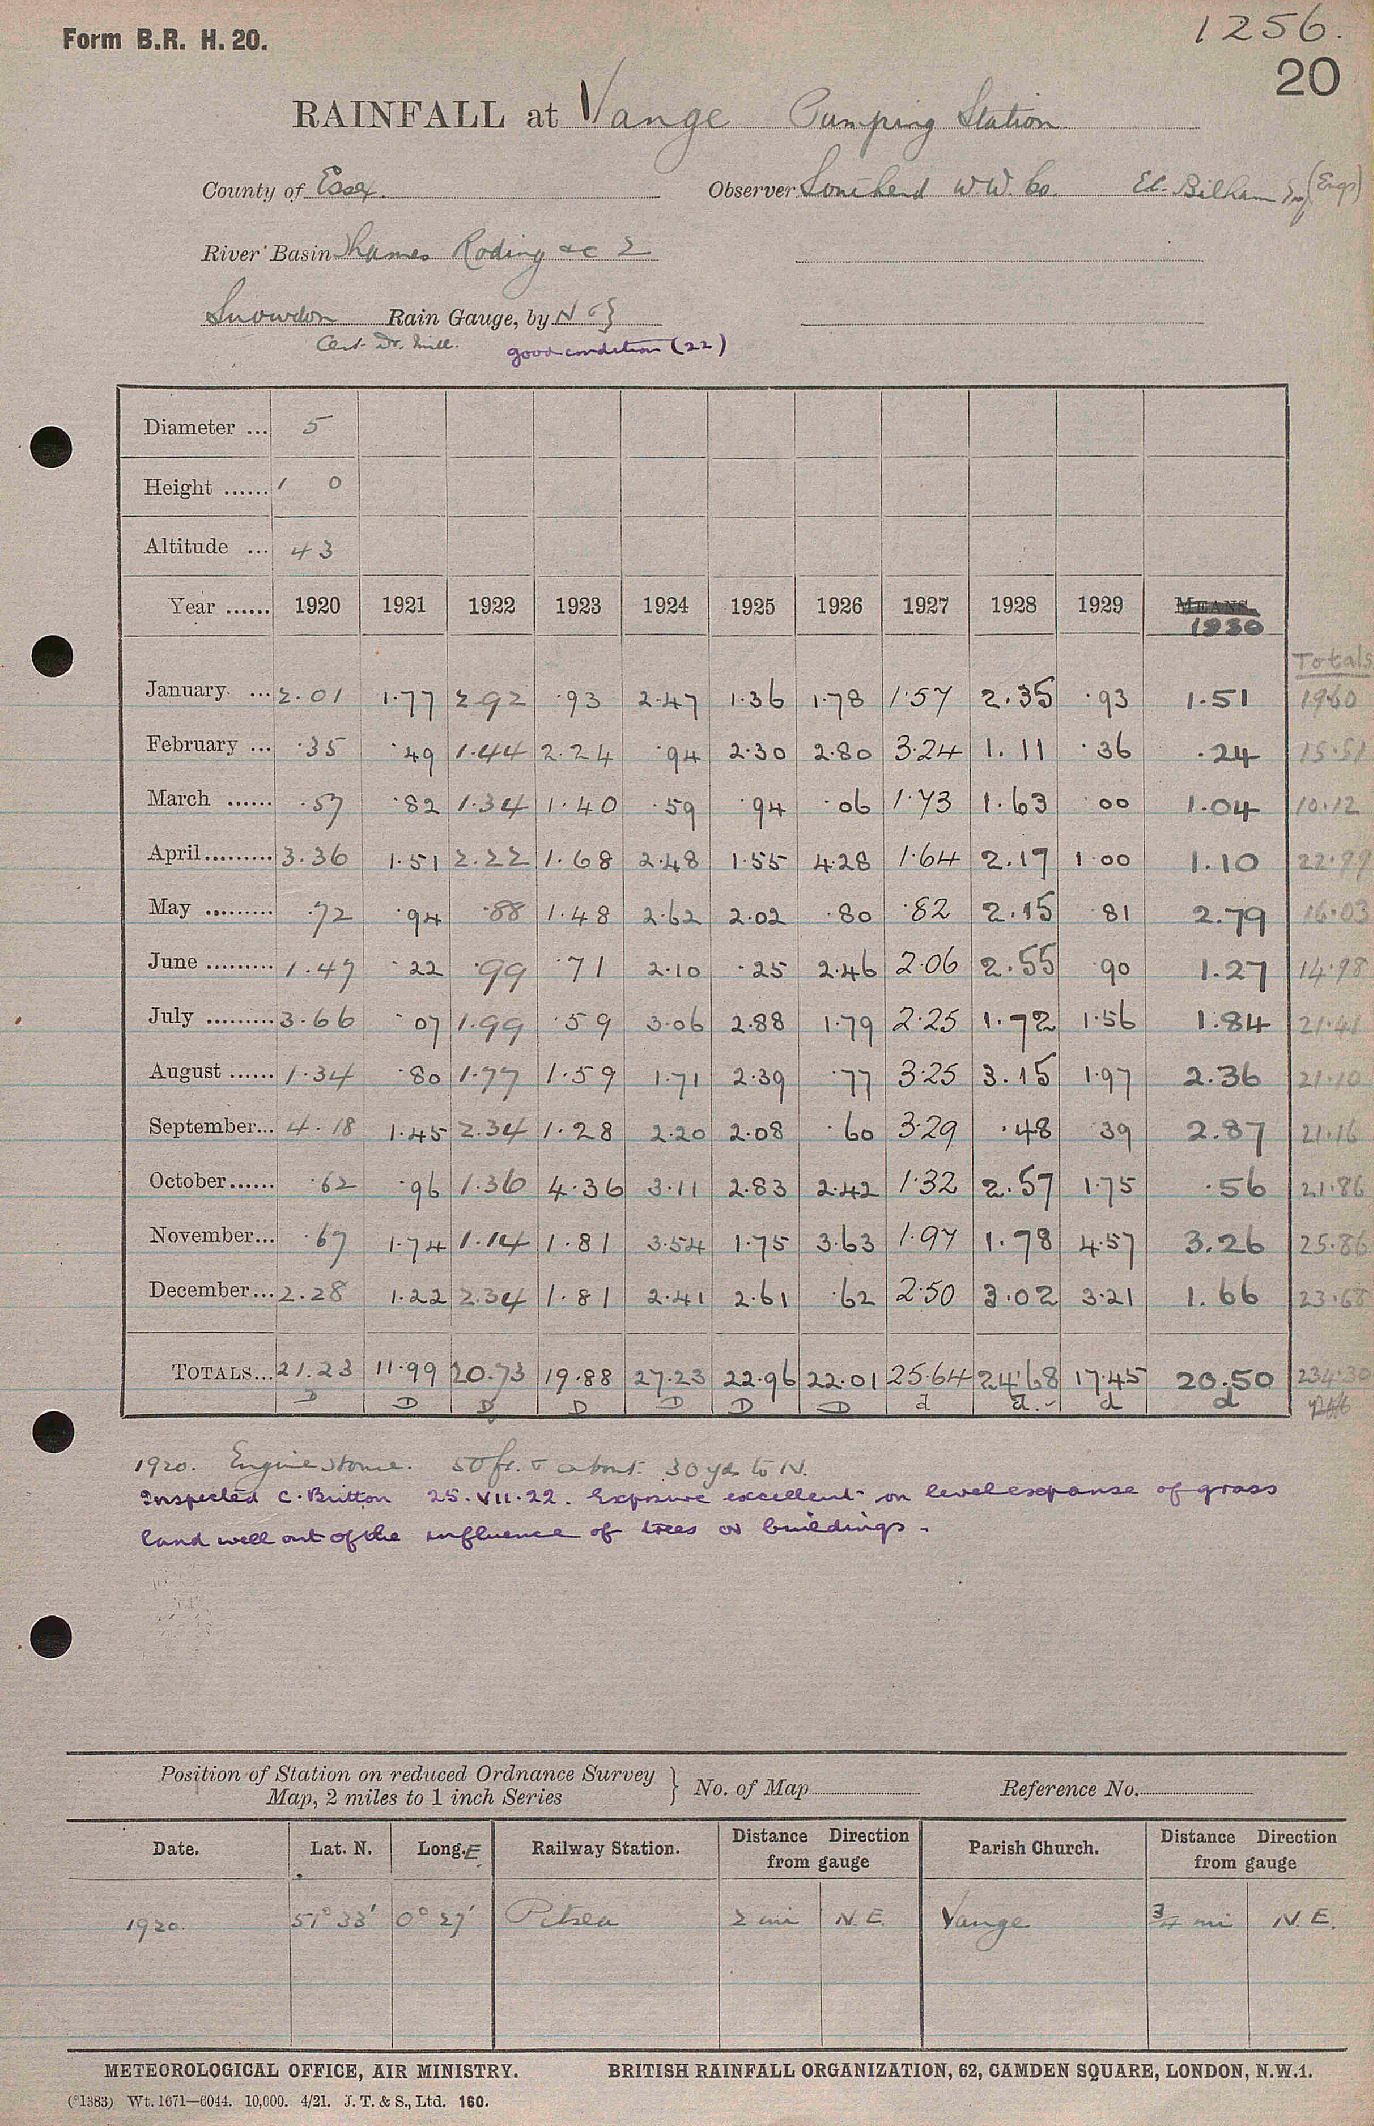 Form B.R. H. 20.
1256.
20
RAINFALL at Vange Pumping Station
County of Essex. Observer Southend W.W. Co. Bilham (Engr)
River Basin Thames Roding &c
Snowdon Rain Gauge, by N & Z
Cert. Dr. Mill. good condition (22)
Diameter ... 5
Height ...... 1 0
Altitude ... 43
Year ...... 1920 1921 1922 1923 1924 1925 1926 1927 1928 1929 MEANS. 1930
Totals
January ... 2.01 1.77 2.92 .93 2.47 1.36 1.78 1.57 2.35 .93 1.51 19.60
February ... .35 .49 1.44 2.24 .94 2.30 2.80 3.24 1.11 .36 .24 15.51
March ...... .57 .82 1.34 1.40 .59 .94 .06 1.73 1.63 .00 1.04 10.12
April......... 3.36 1.51 2.22 1.68 2.48 1.55 4.28 1.64 2.17 1.00 1.10 22.99
May ......... .72 .94 .88 1.48 2.62 2.02 .80 .82 2.15 .81 2.79 16.03
June ......... 1.47 .22 .99 .71 2.10 .25 2.46 2.06 2.55 .90 1.27 14.98
July ......... 3.66 .07 1.99 .59 3.06 2.88 1.79 2.25 1.72 1.56 1.84 21.41
August ...... 1.34 .80 1.77 1.59 1.71 2.39 .77 3.25 3.15 1.97 2.36 21.10
September... 4.18 1.45 2.34 1.28 2.20 2.08 .60 3.29 .48 .39 2.87 21.16
October...... .62 .96 1.36 4.36 3.11 2.83 2.42 1.32 2.57 1.75 .56 21.86
November... .67 1.74 1.14 1.81 3.54 1.75 3.63 1.97 1.78 4.57 3.26 25.86
December... 2.28 1.22 2.34 1.81 2.41 2.61 .62 2.50 3.02 3.21 1.66 23.68
TOTALS... 21.23 11.99 20.73 19.88 27.23 22.96 22.01 25.64 24.68 17.45 20.50 234.30
D D D D D D D d d. d d
1920. Engine House. 50 ft. about 30 yds to N.
Inspected C. Britton 25.VII.22. Exposure excellent on level expanse of grass
land well out of the influence of trees or buildings.
Position of Station on reduced Ordnance Survey
Map, 2 miles to 1 inch Series } No. of Map Reference No.
Date. Lat. N. Long. E. Railway Station. Distance Direction from gauge Parish Church. Distance Direction from gauge
1920. 51° 33' 0° 27' Pitsea 2 mi N.E. Vange 3/4 mi N.E.
METEOROLOGICAL OFFICE, AIR MINISTRY. BRITISH RAINFALL ORGANIZATION, 62, CAMDEN SQUARE, LONDON, N.W.1.
(°1383) Wt. 1671—6044. 10,000. 4/21. J. T. & S., Ltd. 160.